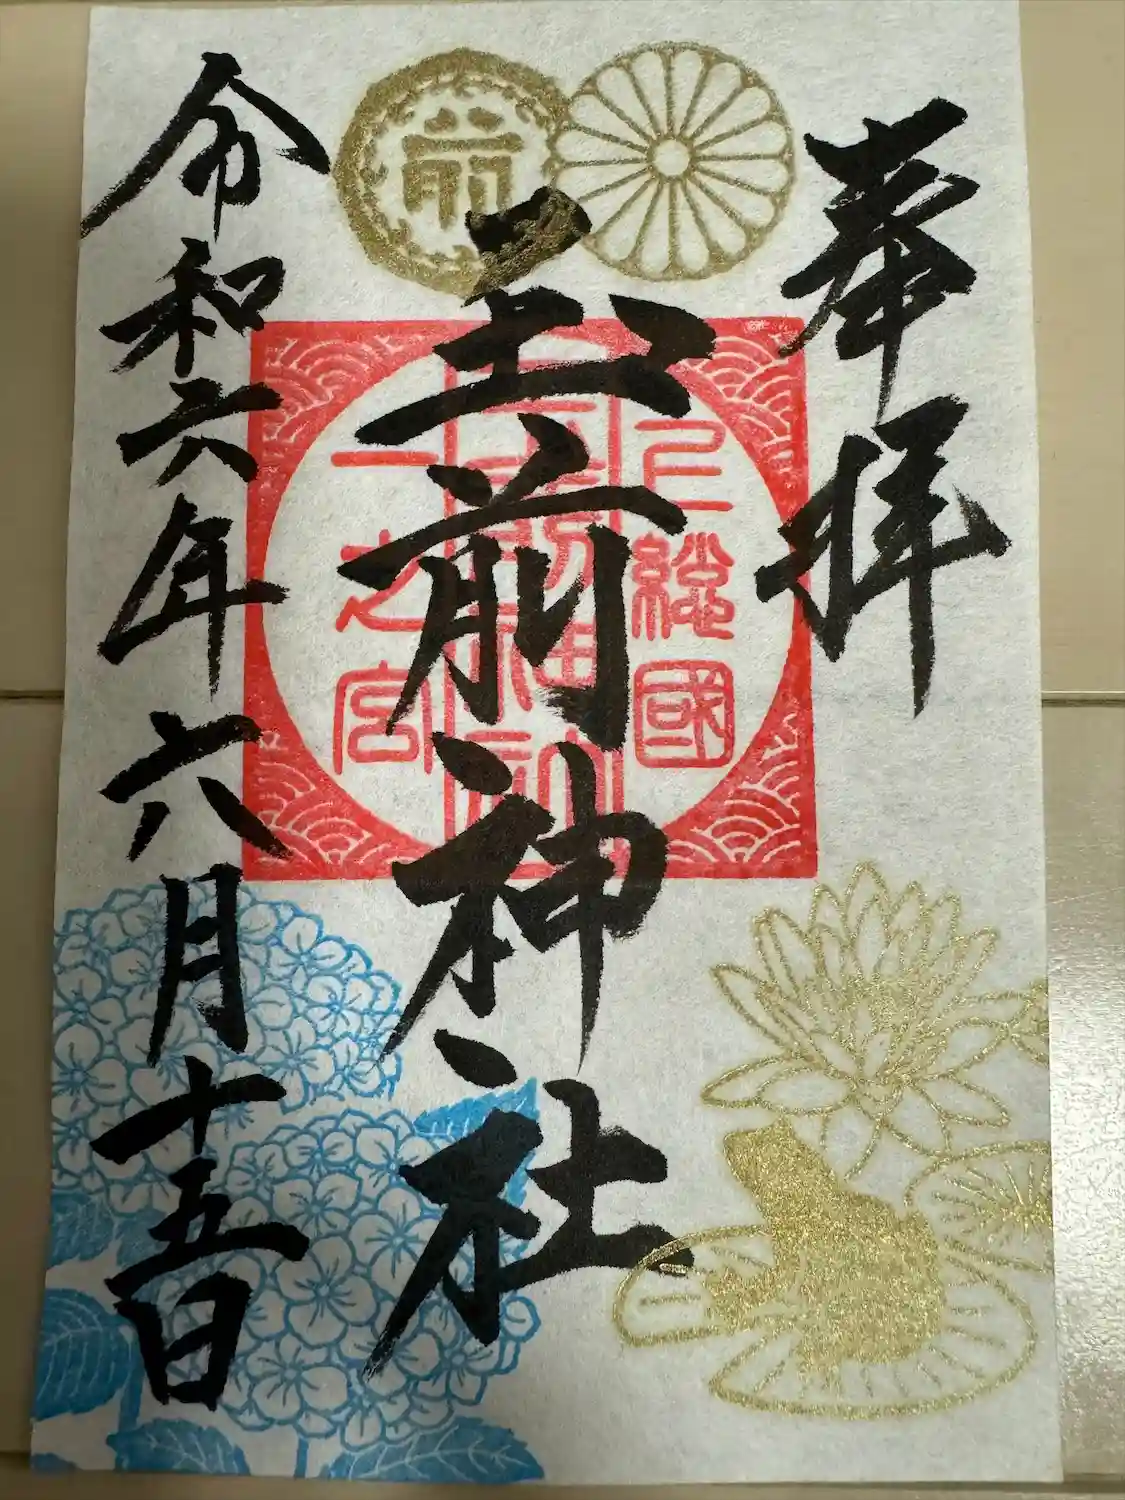 奉拝
玉前神社
令和六年六月十五日
上総國
一之宮